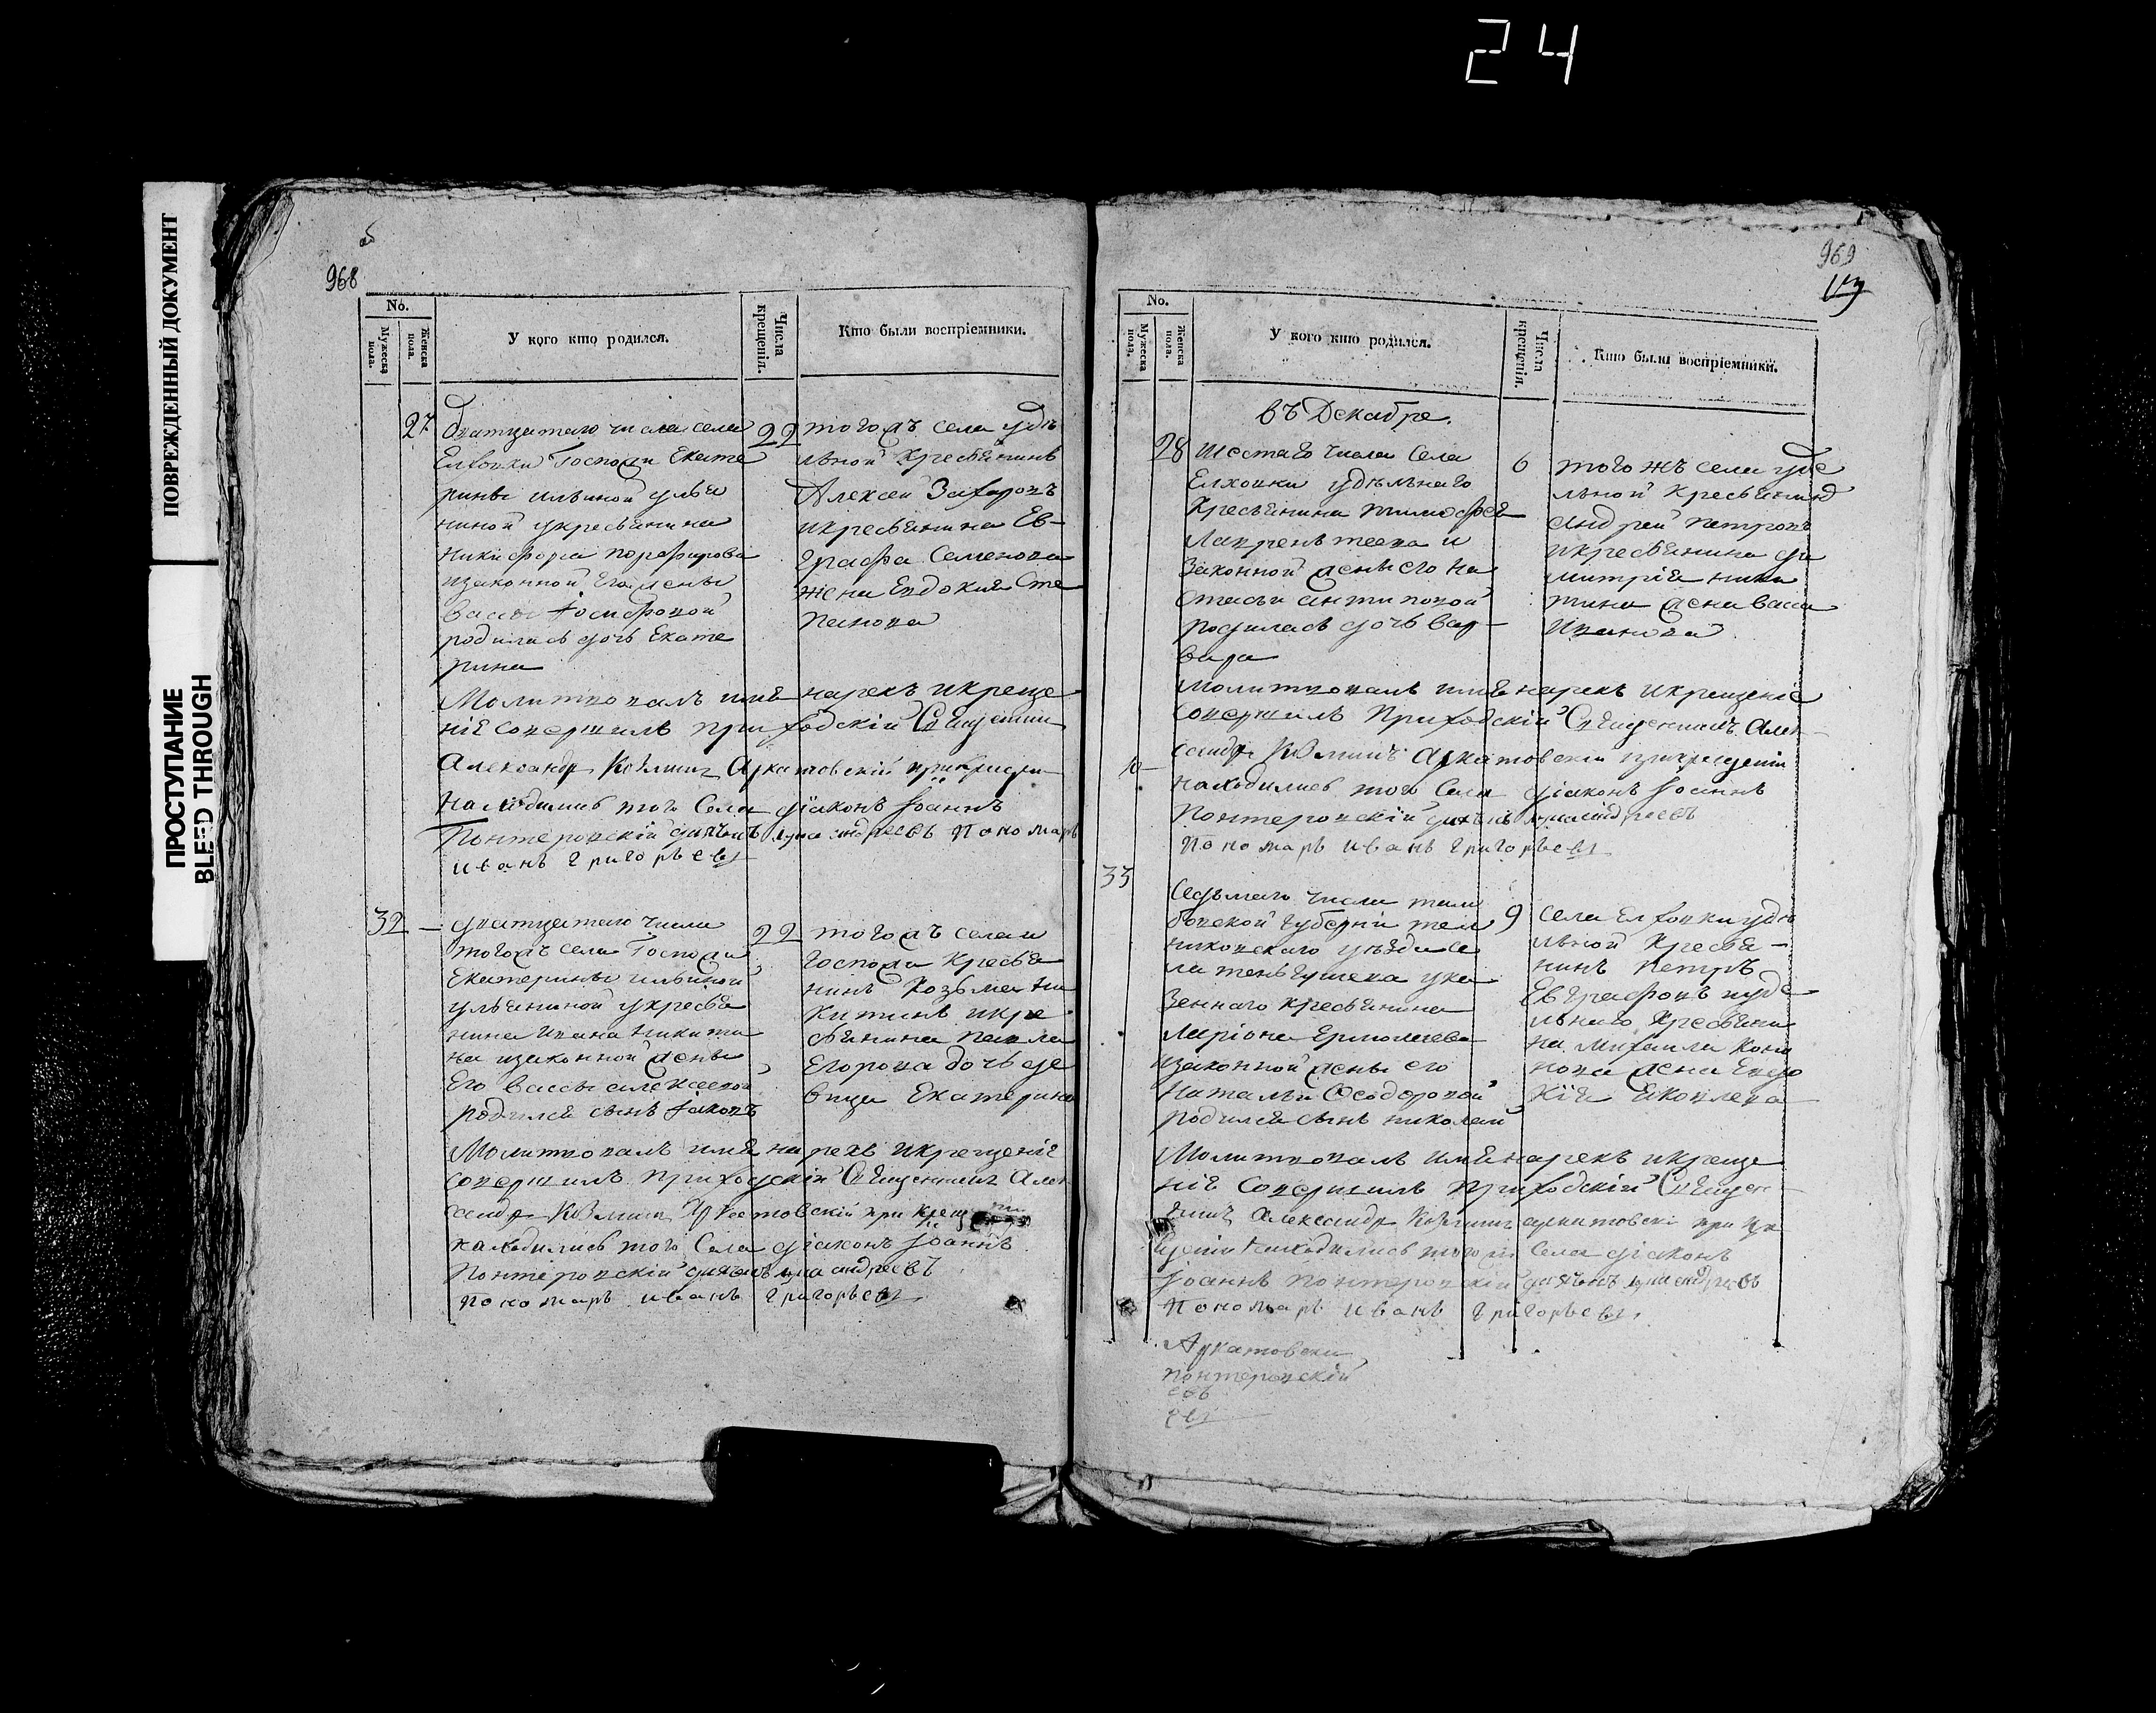 24
ПОВРЕЖДЕННЫЙ ДОКУМЕНТ
ПРОСТУПАНИЕ
BLEED THROUGH
968
No.
Мужеска пола.
Женска пола.
У кого кто родился.
Числа крещенія.
Кто были воспріемники.
27
дватцатаго числа села
Елховки Госпожи Екате
рины ильиной улья
ниной укресьянина
Никифора порфирова
изаконной Его жены
Вассы
родилась дочь Екате
рина
22
тогожъ села удѣ
льной кресьянинъ
Алексей Захаровъ
икресьянина Ев-
графа Семенова
жена Евдокия Сте
панова
Молитвовалъ имя нарекъ икреще
ніе совершилъ приходскій Священник
Александр Козмин Аркатовскій при
находились того Села діаконъ Іоаннъ
Понтеровскій дьячекъ лука андреевъ Пономарь
иванъ григорьевъ
32
дватцатаго числа
тогожъ села Госпожи
Екатерины ильиной
ульяниной укресья
нина Ивана Никити
на изаконной жены
Его Вассы алексеевой
родился сынъ Іаковъ
22
тогожъ села и
госпожи кресья
нинъ Козьма Ни
китинъ икре
сьянина Павла
Егорова дочь де
вица Екатерина
Молитвовалъ имя нарекъ икрещеніе
совершилъ приходскій Священник Алек
сандр Козмин Аркатовскій при
находились того Села діаконъ Іоаннъ
Понтеровскій дьячекъ лука андреевъ
пономарь иванъ григорьевъ
969
No.
Мужеска пола.
Женска пола.
У кого кто родился.
Числа крещенія.
Кто были воспріемники.
въ Декабре.
28
Шестаго числа Села
Елховки удѣльнаго
Кресьянина тимофея
Лаврентеева и
Законной жены его На
стасьи антиповой
родилась дочь Вар-
вара
6
того жъ села уде
льной кресьянинъ
андрей петровъ
икресьянина ди
митрія ники
тина жена васса
Иванова
Молитвовалъ имя нарекъ икрещеніе
совершилъ Приходскій Священникъ Алек-
сандр Козминъ Аркатовскій при крещеніи
находились того Села діаконъ Іоаннъ
Понтеровскій дьячекъ лука андреевъ
пономарь иванъ григорьевъ
33
Седьмаго числа там
бовской губерніи тем
никовскаго уѣзда се
ла теньгушева ука
зеннаго кресьянина
Ларіона Ермолаева
изаконной жены его
Натальи Феодоровой
родился сынъ николай
9
села Елховки удѣ
льной Кресья-
нинъ петръ
Евграфовъ иуде
льнаго Кресьяни
на Михаила Коно
нова жена Евдо
кія Яковлева
Молитвовалъ имя нарекъ икреще
ніе Совершилъ Приходскій Священ
никъ Александр Козмин аркатовскі при кре
щеніи находились того Села діаконъ
Іоаннъ Понтеровскій дьячекъ лука андреевъ
Пономарь иванъ григорьевъ
Аркатовски
понтеровскій
евъ
евъ